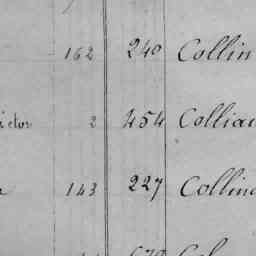 162 240 Collin
ictor 2 454 Collia
143 227 Collin